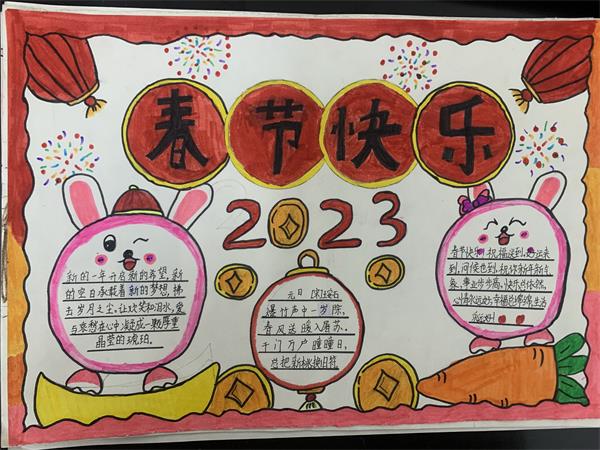 春节快乐
2023
新的一年开启新的希望，新
的空白承载着新的梦想，拂
去岁月之尘，让欢笑和泪水，爱
与哀愁在心中凝成一颗厚重
晶莹的琥珀。
元日 宋·王安石
爆竹声中一岁除，
春风送暖入屠苏。
千门万户曈曈日，
总把新桃换旧符。
春节快乐！祝福送到，好运来
到，问候也到，祝你新年新气
象，事业步步高，快乐身体保，
心情永远妙，幸福把你绕，生活